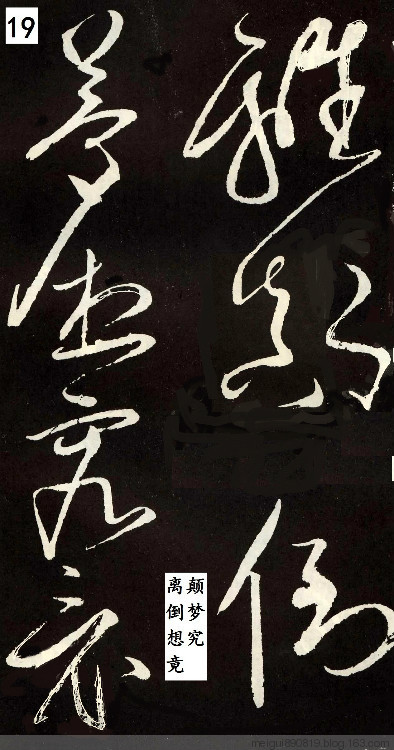 19
離顛倒
夢想究竟
离颠
倒梦
想究
竟
meigui890819.blog.163.com